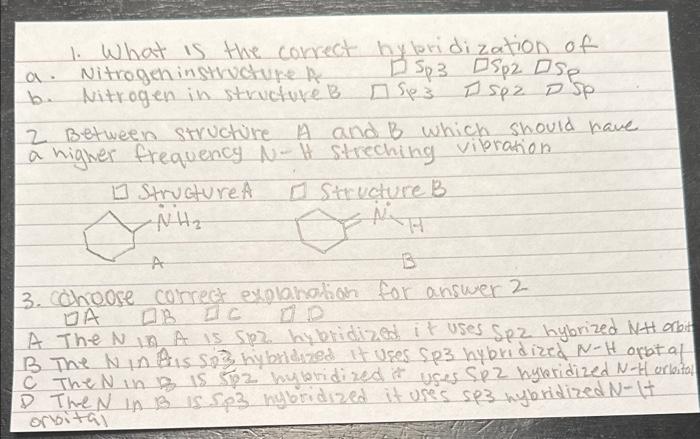 1. What is the correct hybridization of
a. Nitrogen in structure A □ Sp3 □ Sp2 □ Sp
b. Nitrogen in structure B □ Sp3 □ Sp2 □ Sp
2 Between structure A and B which should have
a higher frequency N-H streching vibration
□ Structure A □ Structure B
NH2 N H
A B
3. Choose correct explanation for answer 2
□ A □ B □ C □ D
A The N in A is Sp2 hybridized it uses Sp2 hybrized N-H orbit
B The N in A is Sp3 hybridized it uses Sp3 hybridized N-H orbtal
C The N in B is Sp2 hybridized it uses Sp2 hybridized N-H orbital
D The N in B is Sp3 hybridized it uses sp3 hybridized N-H
orbital